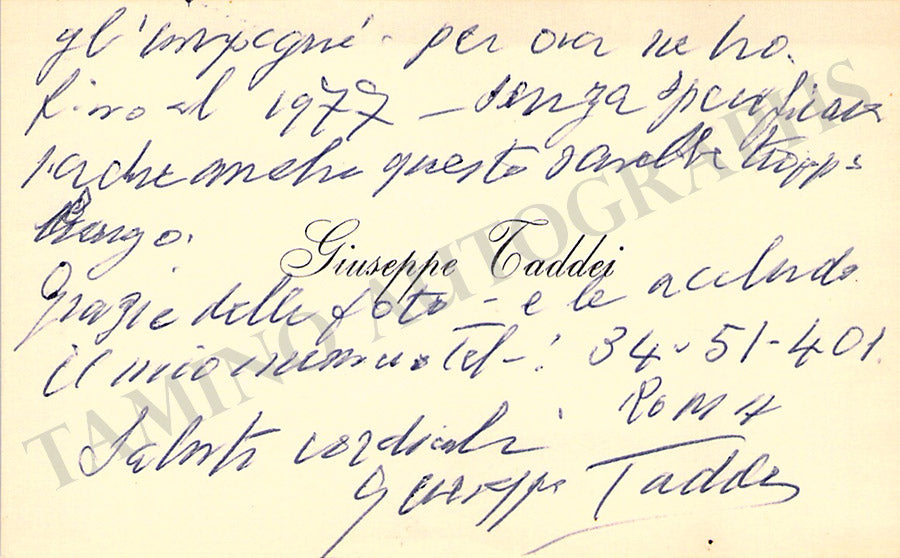 gl'impegni - per ora ne ho.
fino al 1977 - senza
anche questo sarebbe troppo
lungo.
Giuseppe Taddei
Grazie delle foto - e le accludo
il mio numero Tel-: 34-51-401.
Roma
Saluti cordiali
Giuseppe Taddei
TAMINO AUTOGRAPHS